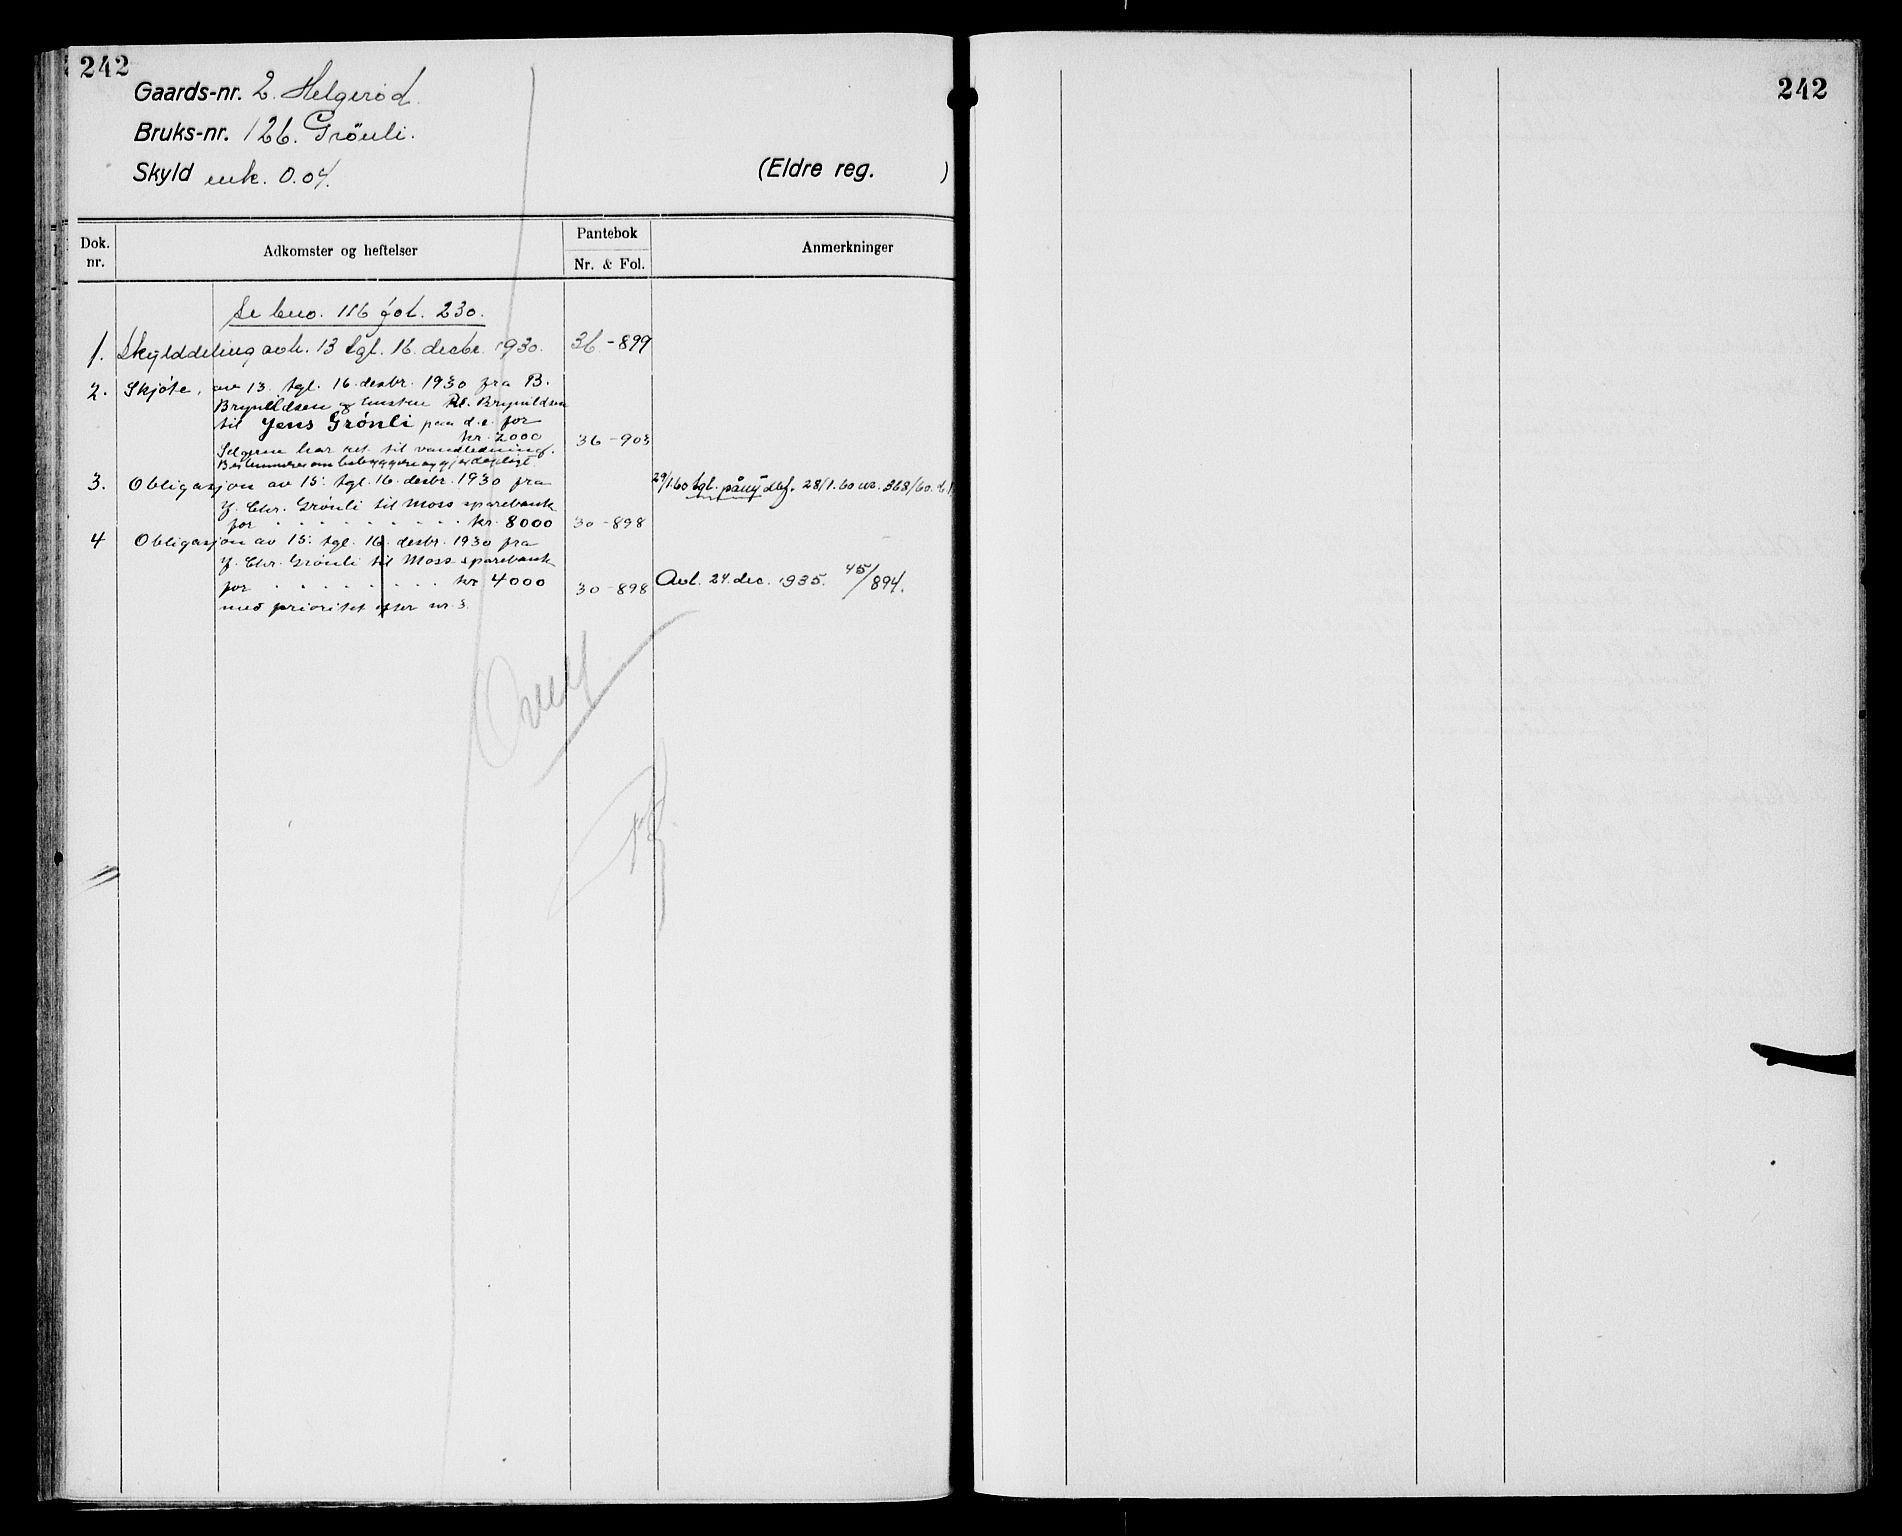 242
Gaards-nr. 2. Helgerød.
Bruks-nr. 126. Grönli.
Skyld mk. 0.04.
(Eldre reg. )
Dok. nr.
Adkomster og heftelser
Pantebok
Nr. & Fol.
Anmerkninger
Se bno. 116 fol. 230.
1. Skylddeling avh. 13 tgl. 16. desbr. 1930. 36-899
2. Skjøte, av 13. tgl. 16. desbr. 1930 fra B.
Brynildsen og hustru Brynildsen
til Jens Grönli paa d.e. for
kr. 2000 36-903
Selgeren har ret til vandledning.
3. Obligasjon av 15. tgl. 16. desbr. 1930 fra 29/1.60 tgl. påny dbf. 28/1.60 nr. 368/60.
J. Chr. Grönli til Moss sparebank
for . . . . . . . . . kr. 8000 30-898
4 Obligasjon av 15. tgl. 16. desbr. 1930 fra
J. Chr. Grönli til Moss sparebank
for . . . . . . . . kr 4000 30-898 Avl. 24. dec. 1935. 45/894.
med prioritet efter nr. 3.
242